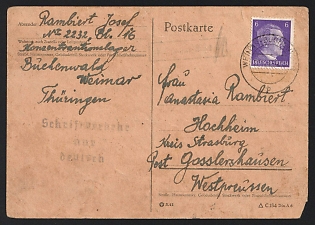 Absender: Rambiert Josef
No 2232, Bl. 16
Konzentrationslager
Buchenwald
Weimar
Thüringen
Schreibsprache
nur
deutsch
Postkarte
6
6
DEUTSCHES REICH
Frau
Anastasia Rambiert
Hochheim
Kreis Strasburg
Post Gosslershausen
Westpreussen